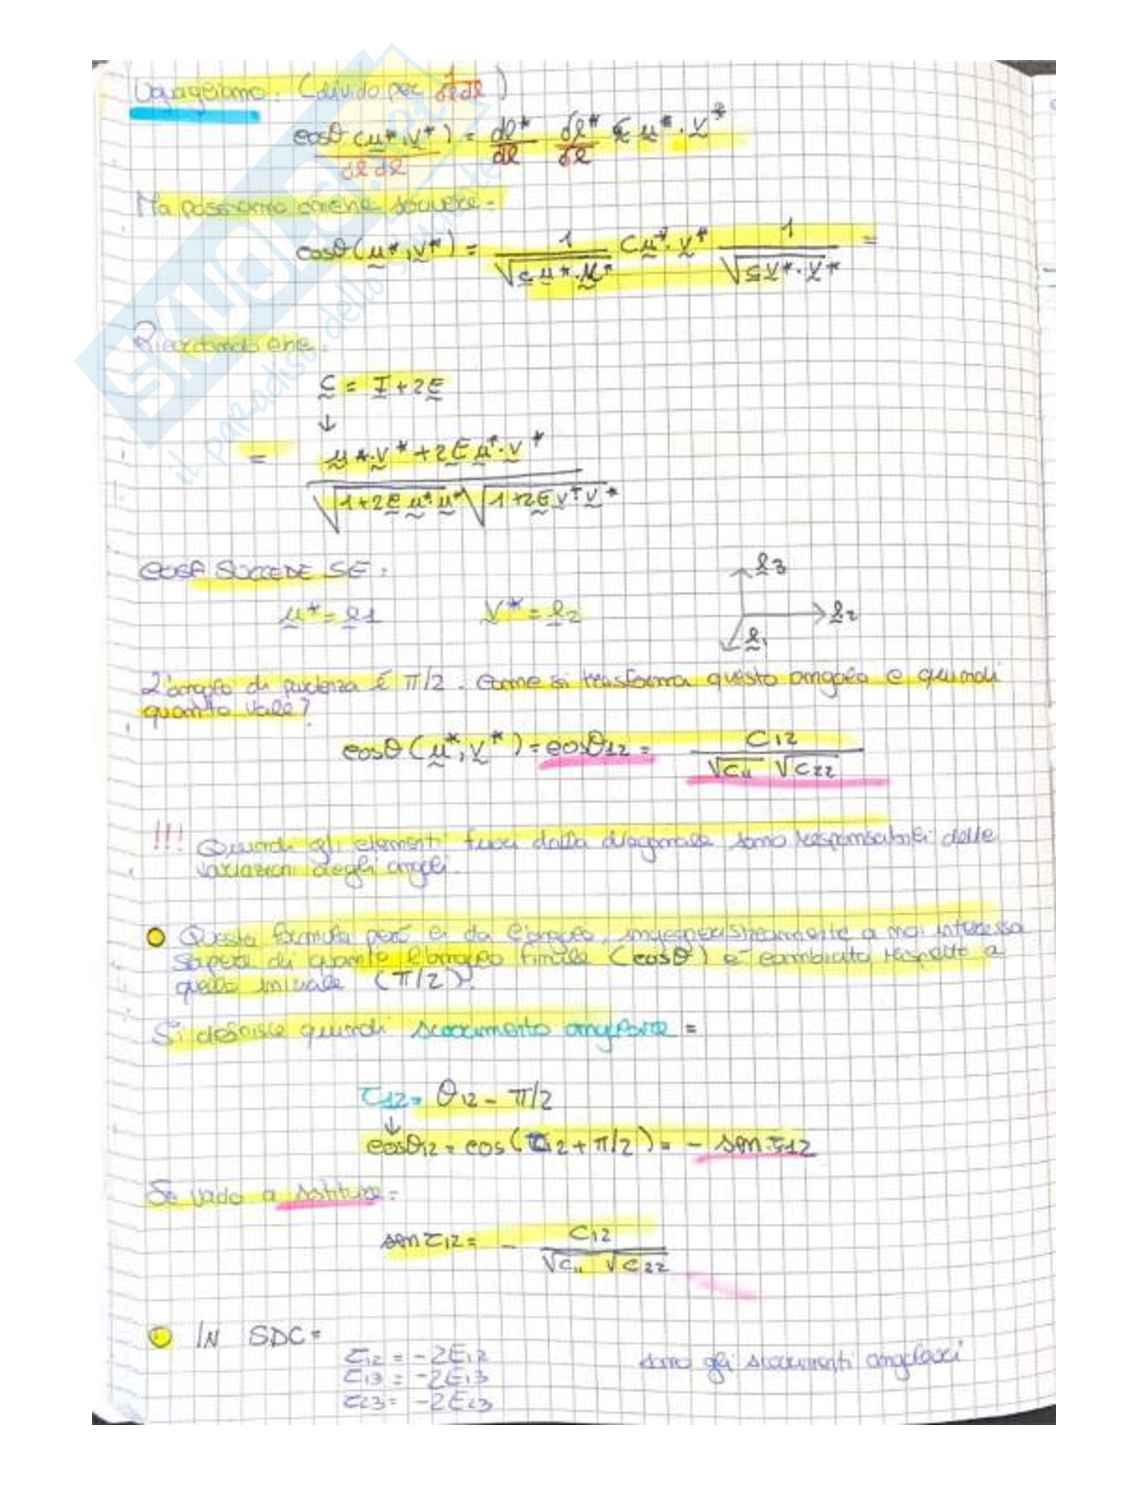 Uguagliamo: (divido per 1/δl dl)
cosθ(u*,v*)/δl dl = dl*/dl δl*/δl C u*·v*
Ma possiamo anche scrivere:
cosθ(u*,v*) = 1/√(C u*·u*) C u*·v* 1/√(C v*·v*) =
Ricordando che:
C = I+2E
↓
= (u*·v* + 2E u*·v*)/(√(1+2E u* u*) √(1+2E v* v*))
COSA SUCCEDE SE:
u* = e1 v* = e2
e3
e2
e1
L'angolo di partenza è π/2. Come si trasforma questo angolo e quindi
quanto vale?
cosθ(u*,v*) = cosθ12 = C12/(√C11 √C22)
!!! Quindi gli elementi fuori dalla diagonale sono responsabili delle
variazioni degli angoli.
Questa formula però ci da l'angolo, ingegneristicamente a noi interessa
sapere di quanto l'angolo finale (cosθ) è cambiato rispetto a
quello iniziale (π/2).
Si definisce quindi scorrimento angolare =
τ12 = θ12 - π/2
↓
cosθ12 = cos(τ12 + π/2) = - sen τ12
Se vado a sostituire =
sen τ12 = - C12/(√C11 √C22)
IN SDC =
τ12 = -2E12
τ13 = -2E13 sono gli scorrimenti angolari
τ23 = -2E23
SKUOLA
il paradiso dello studente